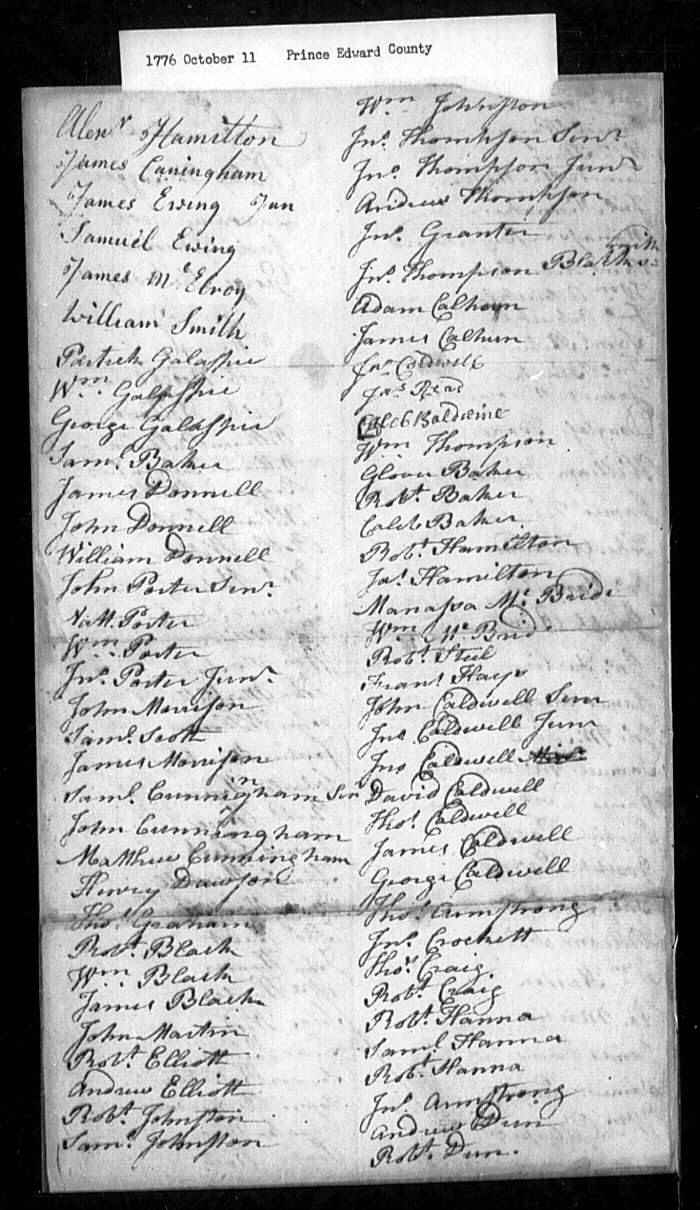 1776 October 11 Prince Edward County
Alexr Hamilton
James Caningham
James Ewing Jun
Samuel Ewing
James McElroy
William Smith
Patrick Galaspie
Wm Galaspie
George Galaspie
Saml Baker
James Donnell
John Donnell
William Donnell
John Porter Senr
Natt Porter
Wm Porter
Jno Porter Junr
John Morrison
Saml Scott
James Morrison
Saml Cunningham Sin
John Cunningham
Matthew Cunningham
Henry Dawson
Thos Graham
Robt Black
Wm Black
James Black
John Martin
Robt Elliott
Andrew Elliott
Robt Johnston
Saml Johnston
Wm Johnston
Jno Thompson Senr
Jno Thompson Junr
Andrew Thompson
Jno Granter
Jno Thompson Blacksmith
Adam Calhoun
James Calhun
Jas Caldwell
Jas Read
Caleb Baldwine
Wm Thompson
Glover Baker
Robt Baker
Caleb Baker
Robt Hamilton
Jas Hamilton
Manassa Mc Bride
Wm Mc Brid
Robt Steel
Frans Hays
John Caldwell Senr
Jno Caldwell Junr
Jno Caldwell
David Caldwell
Thos Caldwell
James Caldwell
George Caldwell
Thos Armstrong
Jno Crockett
Thos Craig
Robt Craig
Robt Hanna
Saml Hanna
Robt Hanna
Jno Armstrong
Andrew Dun
Robt Dun.